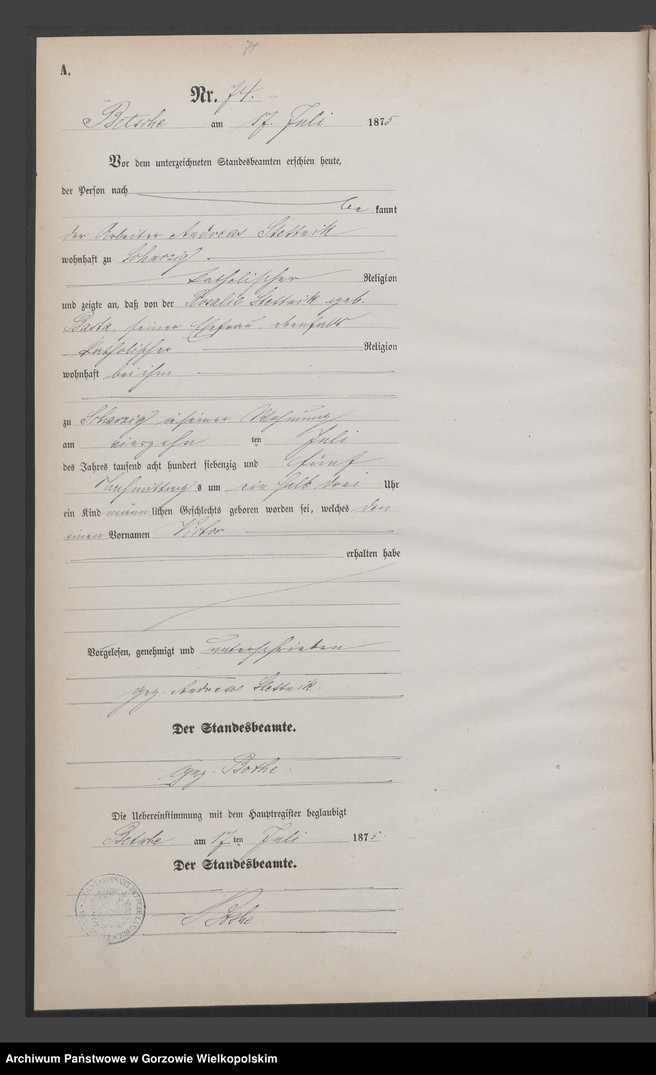 A.
Nr. 74.
Betsche am 17. Juli 1875
Vor dem unterzeichneten Standesbeamten erschien heute,
der Person nach
be kannt
der Arbeiter Andreas Stettnik
wohnhaft zu Scharzig
katholischer Religion
und zeigte an, daß von der Rosalie Stettnik geb.
seiner Ehefrau, ebenfalls
katholischer Religion
wohnhaft bei ihm
zu Scharzig in seiner Wohnung
am vierzehn ten Juli
des Jahres tausend acht hundert siebenzig und fünf
Nachmittag s um ein halb drei Uhr
ein Kind männ lichen Geschlechts geboren worden sei, welches den
einen Vornamen Victor
erhalten habe
Vorgelesen, genehmigt und unterschrieben
gez. Andreas Stettnik.
Der Standesbeamte.
gez. Bothe.
Die Uebereinstimmung mit dem Hauptregister beglaubigt
Betsche am 17 ten Juli 1875
Der Standesbeamte.
Bothe
Archiwum Państwowe w Gorzowie Wielkopolskim